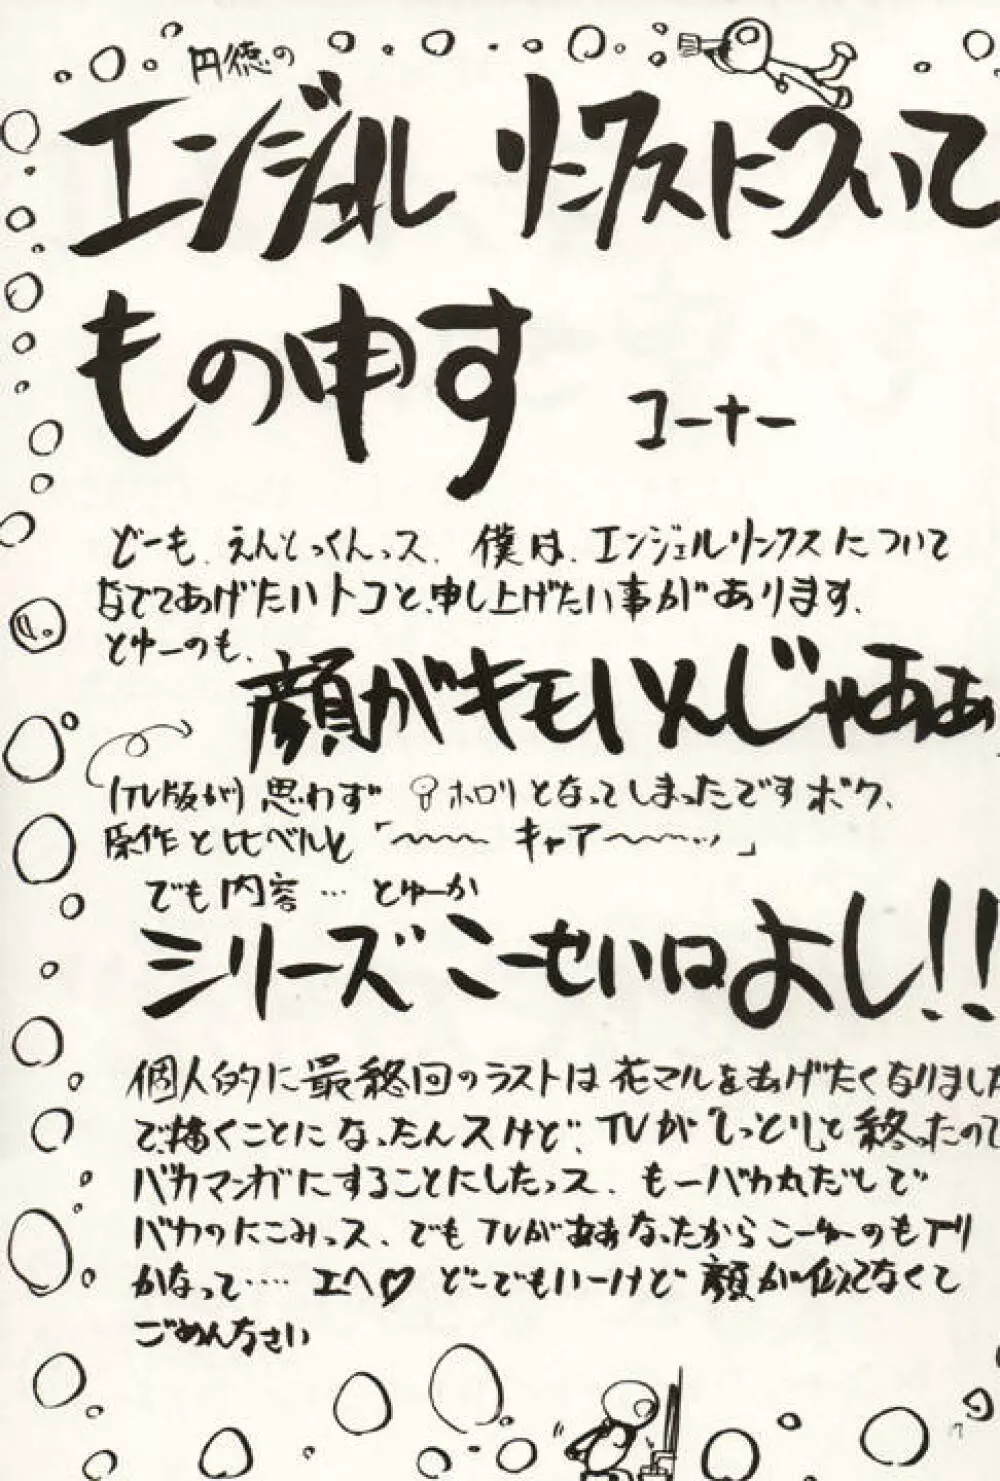 円徳の
エンジェルリンクスについて
もの申す コーナー
どーも、えんとっくんっス、僕は、エンジェルリンクスについて
なでてあげたいトコと、申し上げたい事があります、
とゆーのも、
顔がキモいんじゃあぁ
(TV版が) 思わず ホロリとなってしまったですボク、
原作と比べルと「〜〜〜 キャア〜〜〜…」
でも内容…とゆーか
シリーズこーせいはよし!!
個人的に最終回のラストは花マルをあげたくなりました
で、描くことになったんスけど、TVが「しっとり」と終ったので
バカマンガにすることにしたっス、もーバカ丸だしで
バカのにこみっス、でもTVがああなったからこーゆーのもアリ
かなって‥‥ エヘ♡ どこでもいーけど顔が似てなくて
ごめんなさい